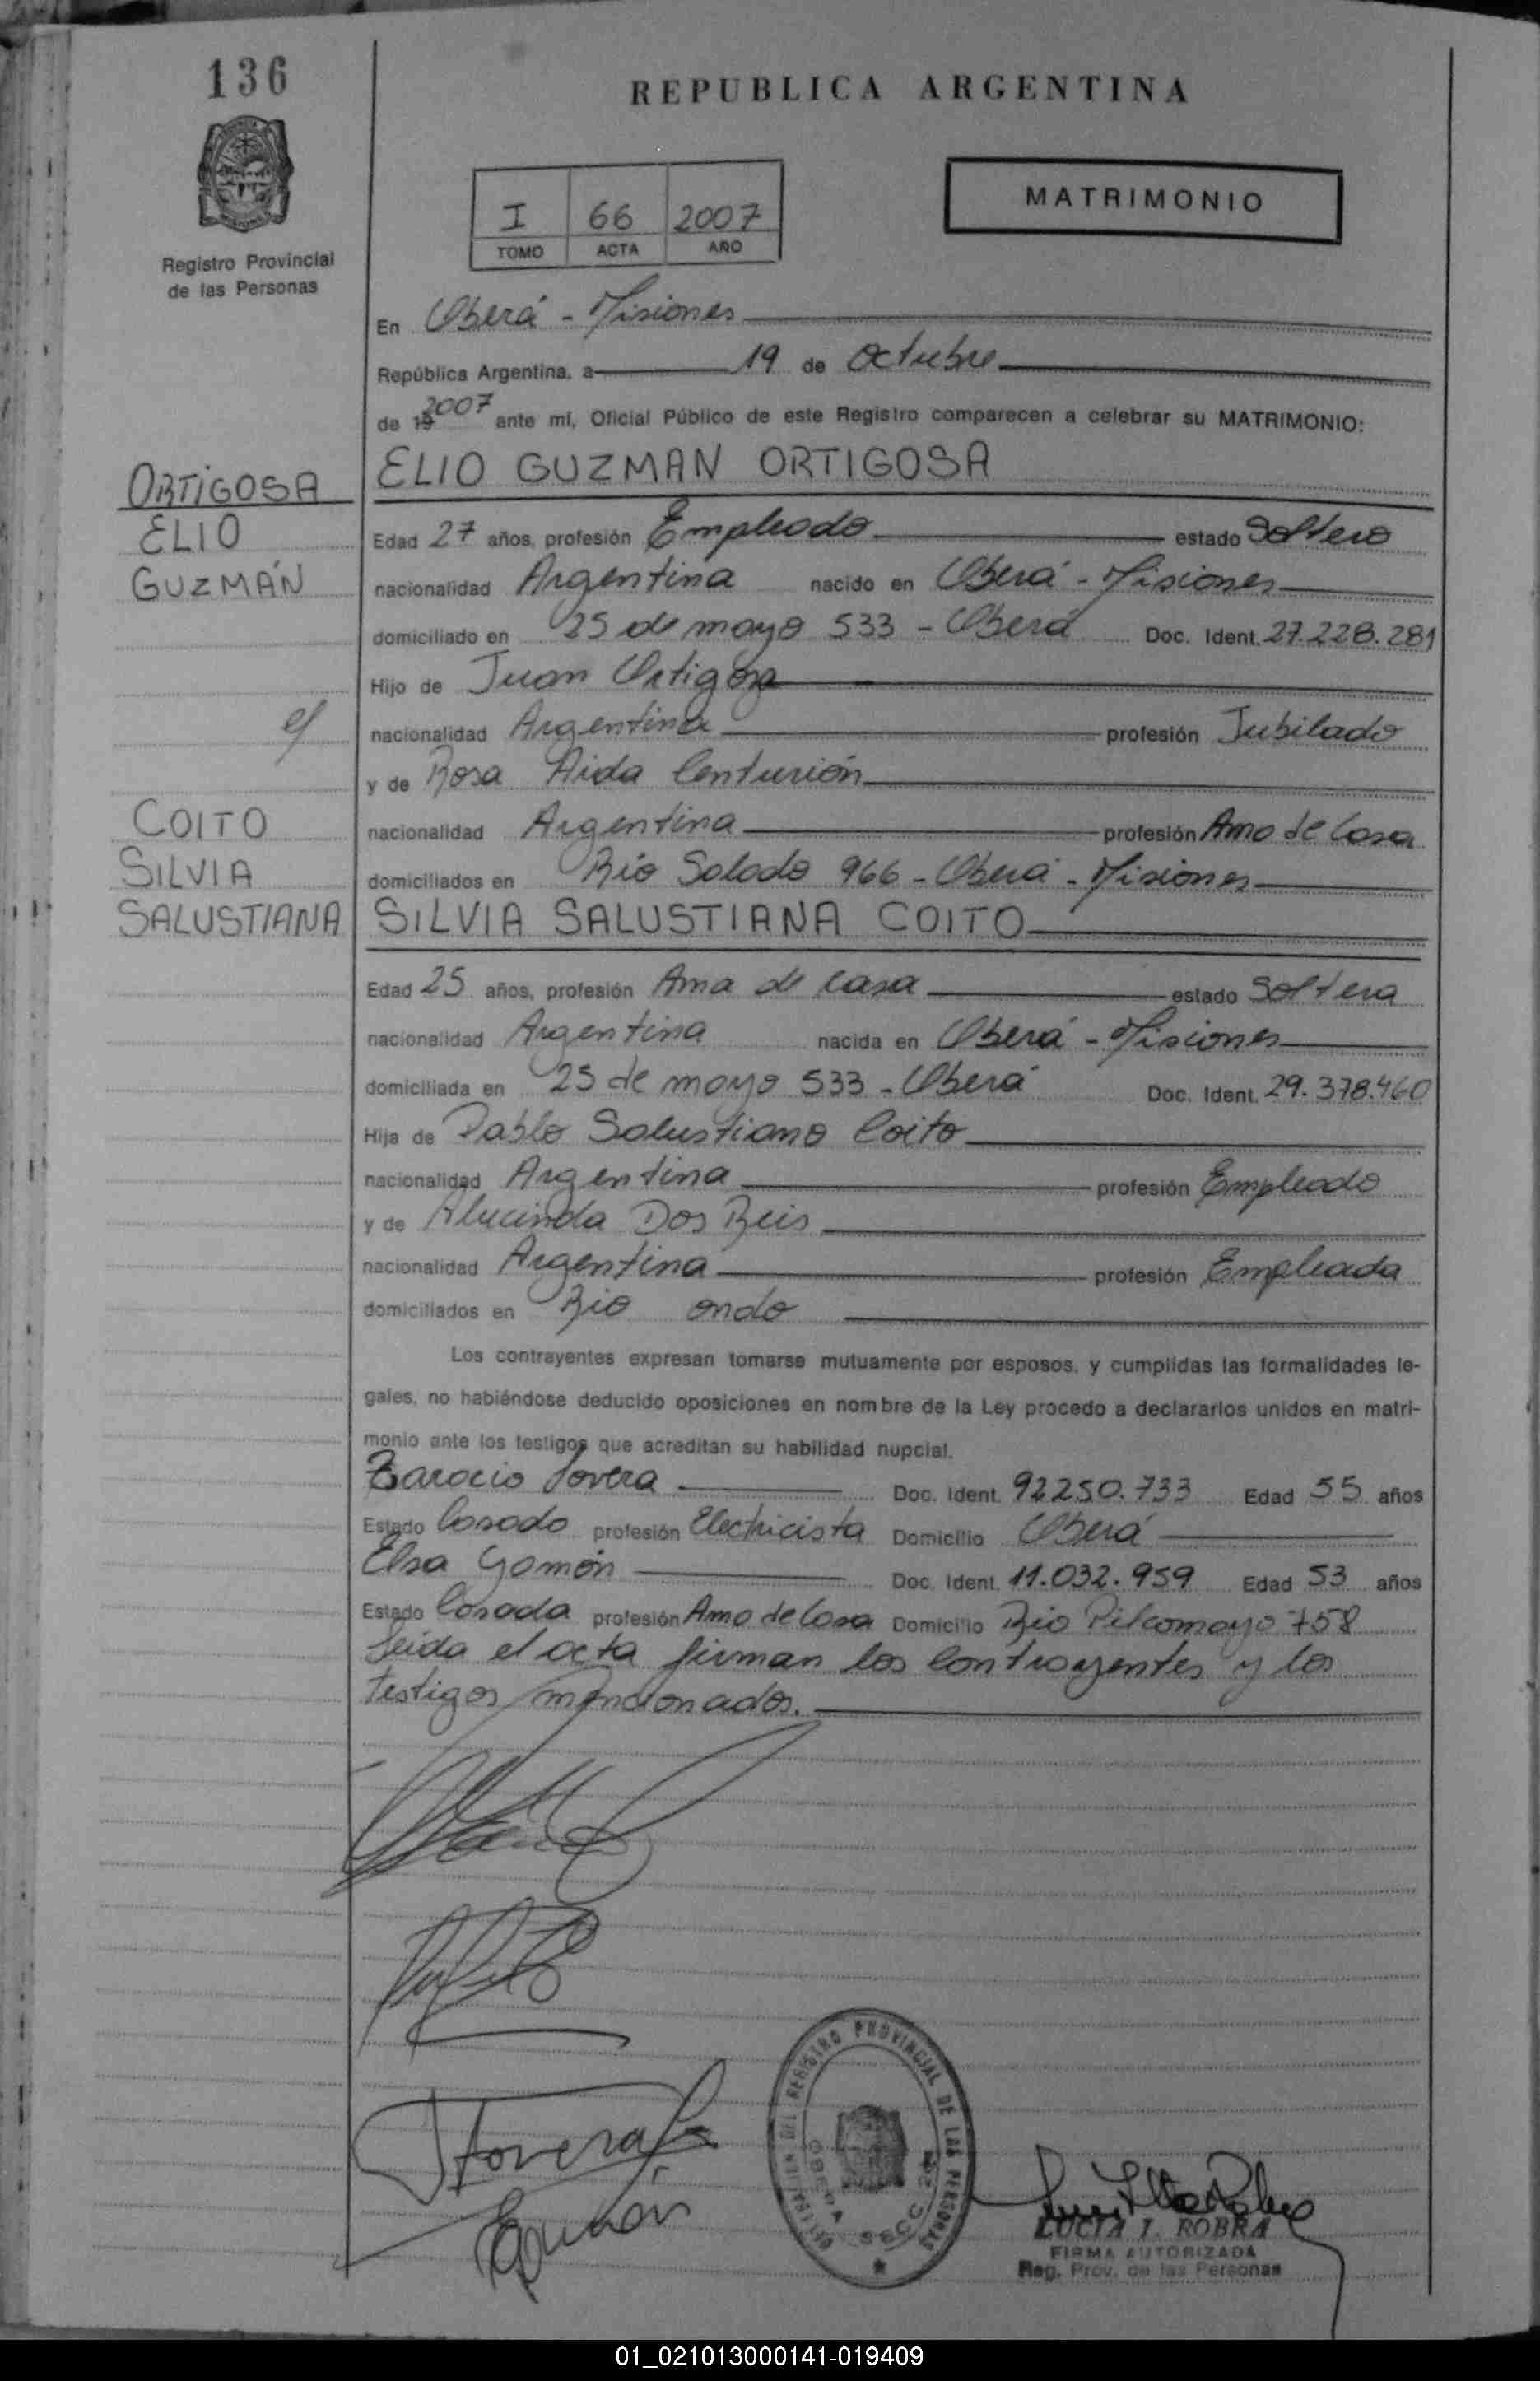 136
REPUBLICA ARGENTINA
Registro Provincial
de las Personas
I 66 2007
TOMO ACTA AÑO
MATRIMONIO
En Oberá - Misiones
República Argentina, a 19 de Octubre
de 19 2007 ante mí, Oficial Público de este Registro comparecen a celebrar su MATRIMONIO:
ORTIGOSA
ELIO
GUZMÁN
ELIO GUZMAN ORTIGOSA
Edad 27 años, profesión Empleado estado Soltero
nacionalidad Argentina nacido en Oberá - Misiones
domiciliado en 25 de mayo 533 - Oberá Doc. Ident. 27.228.281
Hijo de Juan Ortigosa
nacionalidad Argentina profesión Jubilado
y de Rosa Aida Centurión
nacionalidad Argentina profesión Ama de Casa
domiciliados en Rio Salado 966 - Oberá - Misiones
COITO
SILVIA
SALUSTIANA
SILVIA SALUSTIANA COITO
Edad 25 años, profesión Ama de casa estado Soltera
nacionalidad Argentina nacida en Oberá - Misiones
domiciliada en 25 de mayo 533 - Oberá Doc. Ident. 29.378.460
Hija de Pablo Salustiano Coito
nacionalidad Argentina profesión Empleado
y de Alucinda Dos Reis
nacionalidad Argentina profesión Empleada
domiciliados en Rio ondo
Los contrayentes expresan tomarse mutuamente por esposos, y cumplidas las formalidades le-
gales, no habiéndose deducido oposiciones en nombre de la Ley procedo a declararlos unidos en matri-
monio ante los testigos que acreditan su habilidad nupcial.
Lovera Doc. Ident. 92250.733 Edad 55 años
Estado Casado profesión Electricista Domicilio Oberá
Elsa Gomón Doc. Ident. 11.032.959 Edad 53 años
Estado Casada profesión Ama de Casa Domicilio Rio Pilcomayo 758
Leida el acta firman los contrayentes y los
testigos mencionados.
REGISTRO PROVINCIAL DE LAS PERSONAS
OBERA SECC
LUCIA I. ROBRA
FIRMA AUTORIZADA
Reg. Prov. de las Personas
01_021013000141-019409